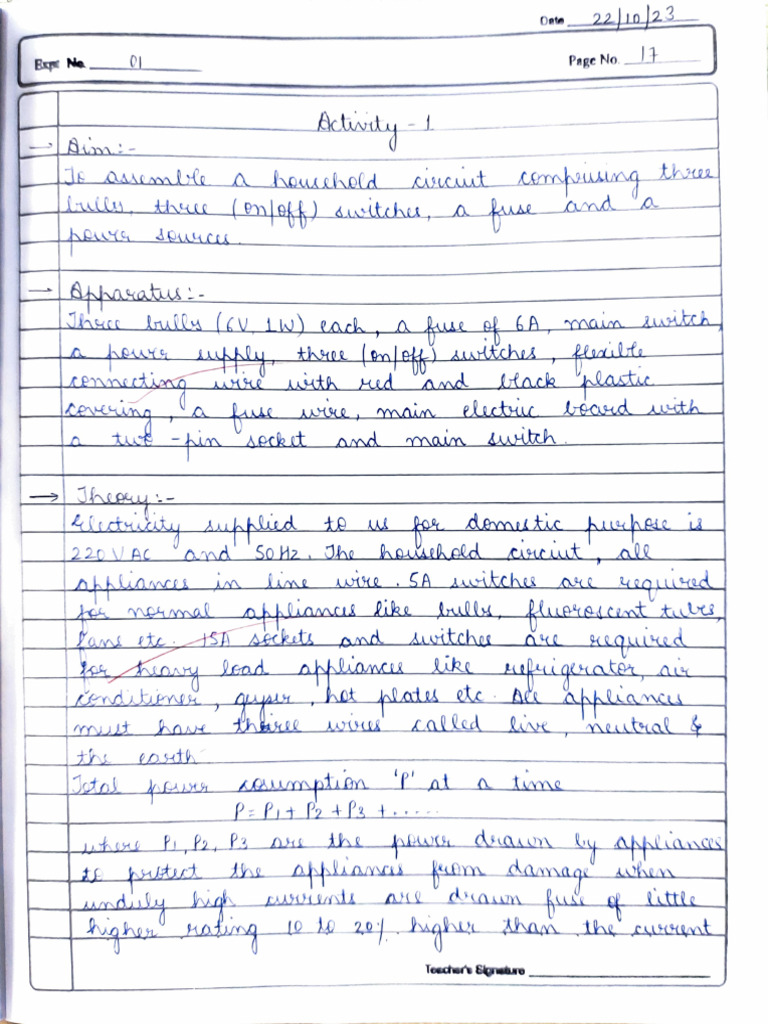 Date 22/10/23
Expt. No. 01
Page No. 17
Activity - 1
→ Aim:-
To assemble a household circiut comprising three
bulbs, three (on/off) switches, a fuse and a
power sources.
→ Apparatus:-
Three bulbs (6V, 1W) each, a fuse of 6A, main switch,
a power supply, three (on/off) switches, flexible
connecting wire with red and black plastic
covering, a fuse wire, main electric board with
a two -pin socket and main switch.
→ Theory:-
Electricity supplied to us for domestic purpose is
220V AC and 50Hz. The household circiut, all
appliances in line wire. 5A switches are required
for normal appliances like bulbs, fluoroscent tubes,
fans etc. 15A sockets and switches are required
for heavy load appliances like refrigerator, air
conditioner, geyser, hot plates etc. All appliances
must have three wires called live, neutral &
the earth
Total power cosumption 'P' at a time
P = P1 + P2 + P3 + ......
where P1, P2, P3 are the power drawn by appliances
to protect the appliances from damage when
unduly high currents are drawn fuse of little
higher rating 10 to 20% higher than the current
Teacher's Signature